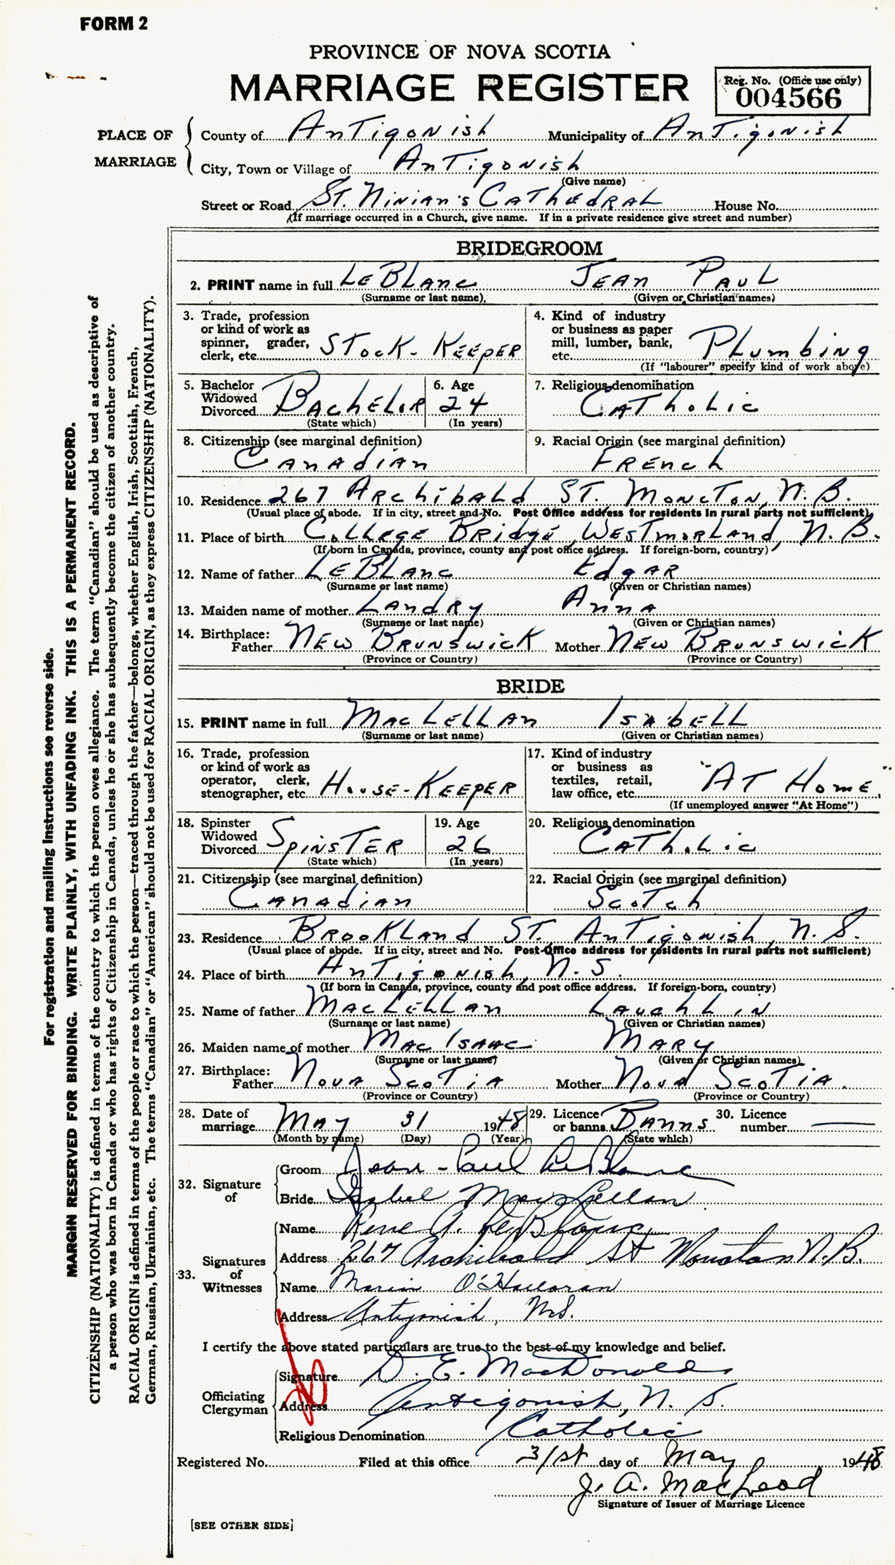 FORM 2
PROVINCE OF NOVA SCOTIA
MARRIAGE REGISTER
Reg. No. (Office use only)
004566
PLACE OF MARRIAGE
County of Antigonish Municipality of Antigonish
City, Town or Village of Antigonish
(Give name)
Street or Road St. Ninian's Cathedral House No.
(If marriage occurred in a Church, give name. If in a private residence give street and number)
BRIDEGROOM
2. PRINT name in full LeBlanc Jean Paul
(Surname or last name) (Given or Christian names)
3. Trade, profession or kind of work as spinner, grader, clerk, etc. Stock-Keeper
4. Kind of industry or business as paper mill, lumber, bank, etc. Plumbing
(If "labourer" specify kind of work above)
5. Bachelor Widowed Divorced Bachelor
(State which)
6. Age 24
(In years)
7. Religious denomination
Catholic
8. Citizenship (see marginal definition)
Canadian
9. Racial Origin (see marginal definition)
French
10. Residence 267 Archibald St. Moncton, N.B.
(Usual place of abode. If in city, street and No. Post Office address for residents in rural parts not sufficient)
11. Place of birth College Bridge, Westmorland, N.B.
(If born in Canada, province, county and post office address. If foreign-born, country)
12. Name of father LeBlanc Edgar
(Surname or last name) (Given or Christian names)
13. Maiden name of mother Landry Anna
(Surname or last name) (Given or Christian names)
14. Birthplace:
Father New Brunswick Mother New Brunswick
(Province or Country) (Province or Country)
BRIDE
15. PRINT name in full MacLellan Isabell
(Surname or last name) (Given or Christian names)
16. Trade, profession or kind of work as operator, clerk, stenographer, etc. House-Keeper
17. Kind of industry or business as textiles, retail, law office, etc. "At Home"
(If unemployed answer "At Home")
18. Spinster Widowed Divorced Spinster
(State which)
19. Age 26
(In years)
20. Religious denomination
Catholic
21. Citizenship (see marginal definition)
Canadian
22. Racial Origin (see marginal definition)
Scotch
23. Residence Brookland St. Antigonish, N.S.
(Usual place of abode. If in city, street and No. Post-Office address for residents in rural parts not sufficient)
24. Place of birth Antigonish, N.S.
(If born in Canada, province, county and post office address. If foreign-born, country)
25. Name of father MacLellan Laughlin
(Surname or last name) (Given or Christian names)
26. Maiden name of mother MacIsaac Mary
(Surname or last name) (Given or Christian names)
27. Birthplace:
Father Nova Scotia Mother Nova Scotia.
(Province or Country) (Province or Country)
28. Date of marriage May 31 1948
(Month by name) (Day) (Year)
29. Licence or banns Banns
(State which)
30. Licence number
32. Signature of
Groom Jean-Paul LeBlanc
Bride Isabel MacLellan
33. Signatures of Witnesses
Name Rene A. LeBlanc
Address 267 Archibald St Moncton N.B.
Name Marie O'Halloran
Address Antigonish, N.S.
I certify the above stated particulars are true to the best of my knowledge and belief.
Officiating Clergyman
Signature D. E. MacDonald
Address Antigonish, N. S.
Religious Denomination Catholic
Registered No. Filed at this office 31st day of May 1948
J. A. MacLeod
Signature of Issuer of Marriage Licence
[SEE OTHER SIDE]
For registration and mailing instructions see reverse side.
MARGIN RESERVED FOR BINDING. WRITE PLAINLY, WITH UNFADING INK. THIS IS A PERMANENT RECORD.
CITIZENSHIP (NATIONALITY) is defined in terms of the country to which the person owes allegiance. The term "Canadian" should be used as descriptive of
a person who was born in Canada or who has rights of Citizenship in Canada, unless he or she has subsequently become the citizen of another country.
RACIAL ORIGIN is defined in terms of the people or race to which the person—traced through the father—belongs, whether English, Irish, Scottish, French,
German, Russian, Ukrainian, etc. The terms "Canadian" or "American" should not be used for RACIAL ORIGIN, as they express CITIZENSHIP (NATIONALITY).